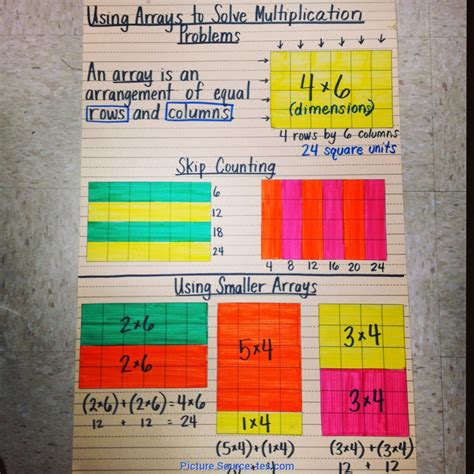 Using Arrays to Solve Multiplication
Problems
An array is an
arrangement of equal
rows and columns
4×6
(dimensions)
4 rows by 6 columns
24 square units
Skip Counting
6
12
18
24
4 8 12 16 20 24
Using Smaller Arrays
2×6
2×6
(2×6)+(2×6)=4×6
12 + 12 = 24
5×4
1×4
(5×4)+(1×4)
3×4
3×4
(3×4)+(3×4)
12 + 12
Picture Source:tes.com